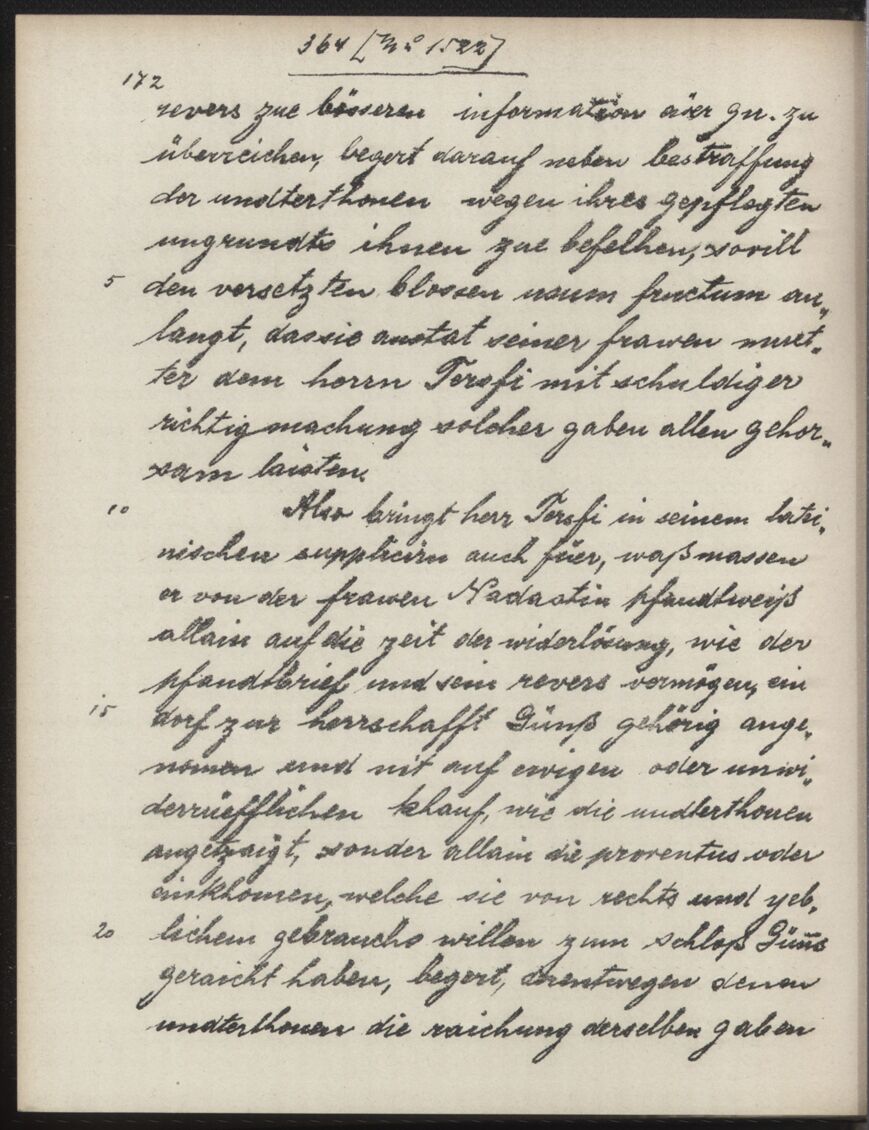 364 [No 1522]
172
revers zue bösseren information äer gn. zu
überreichen, begert darauf neben bestraffung
der undterthonen wegen ihres gepflegten
ungrundts ihnen zue befelhen, sovill
5 den versetzten blossen usum fructum an„
langt, das sie anstat seiner frawen muet„
ter dem herrn Tersfi mit schuldiger
richtigmachung solcher gaben allen gehor„
sam laisten.
10 Also bringt herr Tersfi in seinem lati„
nischen supplicirn auch füer, waßmassen
er von der frawen Nadastin pfandtweiß
allain auf die zeit der widerlösung, wie der
pfandtbrief und sein revers vermögen, ein
15 dorf zur herrschafft Günß gehörig ange„
nomen und nit auf ewigen oder unwi„
derrüefflichen khauf, wie die undterthonen
angetzaigt, sonder allain die proventus oder
einkhomen, welche sie von rechts und yeb„
20 lichem gebrauchs willen zum schloß Günns
geraicht haben, begert, derentwegen denen
undterthonen die raichung derselben gaben